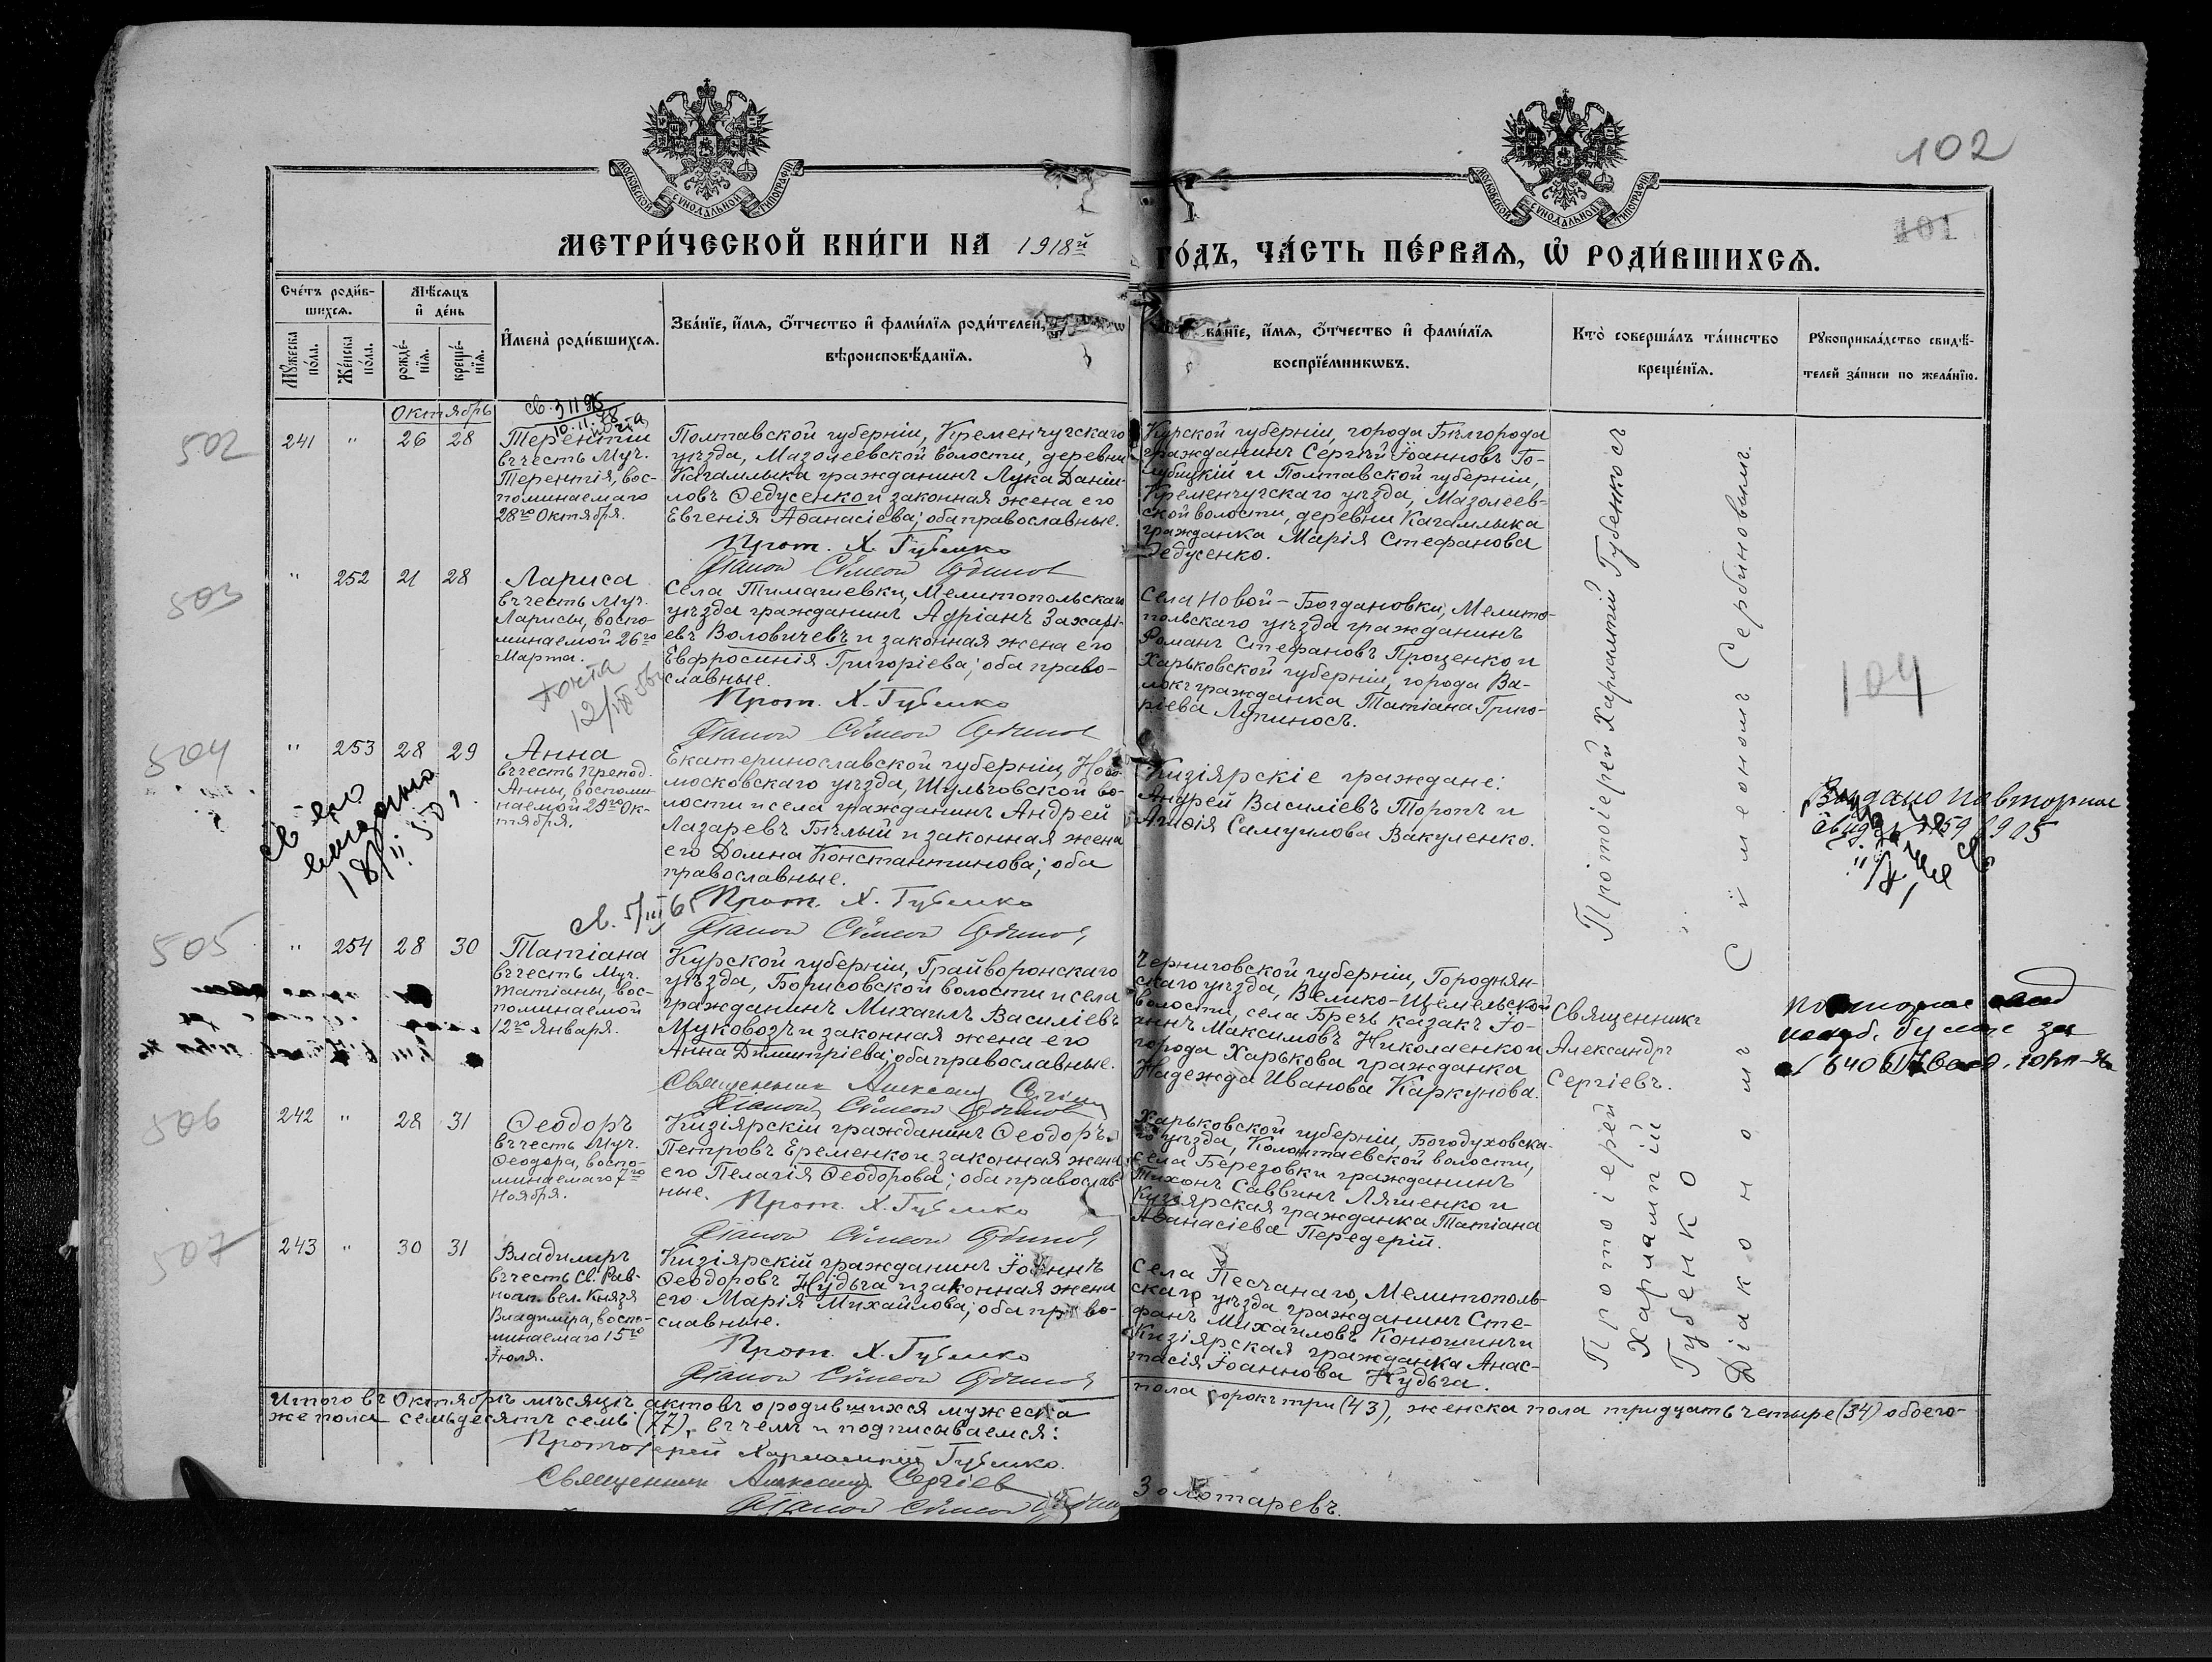 102
101
МОСКОВСКОЙ СѴНОДАЛЬНОЙ ТИПОГРАФІИ
МОСКОВСКОЙ СѴНОДАЛЬНОЙ ТИПОГРАФІИ
МЕТРИ́ЧЕСКОЙ КНИ́ГИ НА 1918й ГО́ДЪ, ЧА́СТЬ ПЕ́РВАѦ, Ѡ҆ РОДИ́ВШИХСѦ.
Сче́тъ роди́в-
шихсѧ.
Мѣ́сѧцъ
и҆ де́нь
Мꙋ́жеска по́ла.
Же́нска по́ла.
рожде́-
нїѧ.
креще́-
нїѧ.
И҆мена̀ роди́вшихсѧ.
Зва́нїе, и҆́мѧ, ѻ҆́тчество и҆ фами́лїѧ роди́телей,
вѣроисповѣ́данїѧ.
ва́нїе, и҆́мѧ, ѻ҆́тчество и҆ фами́лїѧ
воспрїе́мникѡвъ.
Кто̀ соверша́лъ та́инство
креще́нїѧ.
Рꙋкоприкла́дство свидѣ́-
телей за́писи по жела́нїю.
Октябрь
502
241 " 26 28
Терентій
въ честь Муч.
Терентія, вос-
поминаемаго
28го Октября.
Полтавской губерніи, Кременчугскаго
уѣзда, Мазолеевской волости, деревни
Кагамлыка гражданинъ Лука Даніи-
ловъ Ѳедусенко и законная жена его
Евгенія Аѳанасіева; оба православные.
Прот. Х. Губенко
Діаконъ Сѵмеонъ
Курской губерніи, города Бѣлгорода
гражданинъ Сергѣй Іоанновъ Го-
лубицкій и Полтавской губерніи,
Кременчугскаго уѣзда, Мазолеев-
ской волости, деревни Кагамлыка
гражданка Марія Стефанова
Ѳедусенко.
Протоіерей Харлампій Губенко съ
Діакономъ Сѵмеономъ Сербиновымъ.
503
" 252 21 28
Лариса
въ честь Муч.
Ларисы, воспо-
минаемой 26го
Марта.
Села Тимашевки, Мелитопольскаго
уѣзда гражданинъ Адріанъ Захарі-
евъ Воловичевъ и законная жена его
Евфросинія Григоріева; оба право-
славные.
Прот. Х. Губенко
Діаконъ Сѵмеонъ
Села Новой-Богдановки, Мелито-
польскаго уѣзда гражданинъ
Романъ Стефановъ Проценко и
Харьковской губерніи, города Ва-
локъ гражданка Татіана Григо-
ріева Лупиносъ.
104
504
" 253 28 29
Анна
въ честь Препод.
Анны, воспоми-
наемой 29го Ок-
тября.
Екатеринославской губерніи, Ново-
московскаго уѣзда, Шульговской во-
лости и села гражданинъ Андрей
Лазаревъ Бѣлый и законная жена
его Домна Константинова; оба
православные.
Прот. Х. Губенко
Діаконъ Сѵмеонъ
Кизіярскіе граждане:
Андрей Василіевъ Торопъ и
Агаѳія Самуилова Вакуленко.
св. 5/III 65
505
" 254 28 30
Татіана
въ честь Муч.
Татіаны, вос-
поминаемой
12го Января.
Курской губерніи, Грайворонскаго
уѣзда, Борисовской волости и села
гражданинъ Михаилъ Василіевъ
Муковозъ и законная жена его
Анна Димитріева; оба православные.
Священникъ Александръ Сергіевъ
Діаконъ Сѵмеонъ
Черниговской губерніи, Городнян-
скаго уѣзда, Велико-Щемельской
волости, села Бречъ казакъ Іо-
аннъ Максимовъ Николаенко и
города Харькова гражданка
Надежда Иванова Каркунова.
Священникъ
Александръ
Сергіевъ.
506
242 " 28 31
Ѳеодоръ
въ честь Муч.
Ѳеодора, воспо-
минаемаго 7го
Ноября.
Кизіярскій гражданинъ Ѳеодоръ
Петровъ Еременко и законная жена
его Пелагія Ѳеодорова; оба православ-
ные.
Прот. Х. Губенко
Діаконъ Сѵмеонъ
Харьковской губерніи, Богодуховска-
го уѣзда, Колонтаевской волости,
села Березовки гражданинъ
Тихонъ Саввинъ Ляшенко и
Кизіярская гражданка Татіана
Аѳанасіева Передерій.
Протоіерей
Харлампій
Губенко
507
243 " 30 31
Владимиръ
въ честь Св. Рав-
ноап. вел. Князя
Владиміра, воспо-
минаемаго 15го
Іюля.
Кизіярскій гражданинъ Іоаннъ
Ѳеодоровъ Нудьга и законная жена
его Марія Михайлова; оба право-
славные.
Прот. Х. Губенко
Діаконъ Сѵмеонъ
Села Песчанаго, Мелитополь-
скаго уѣзда гражданинъ Сте-
фанъ Михаиловъ Конюшинъ и
Кизіярская гражданка Анас-
тасія Іоаннова Нудьга.
Итого въ Октябрѣ мѣсяцѣ актовъ о родившихся мужеска пола сорокъ три (43), женска пола тридцать четыре (34) обоего-
же пола семьдесятъ семь (77), въ чемъ и подписываемся:
Протоіерей Харлампій Губенко.
Священникъ Александръ Сергіев
Діаконъ Сѵмеонъ
Золотаревъ.